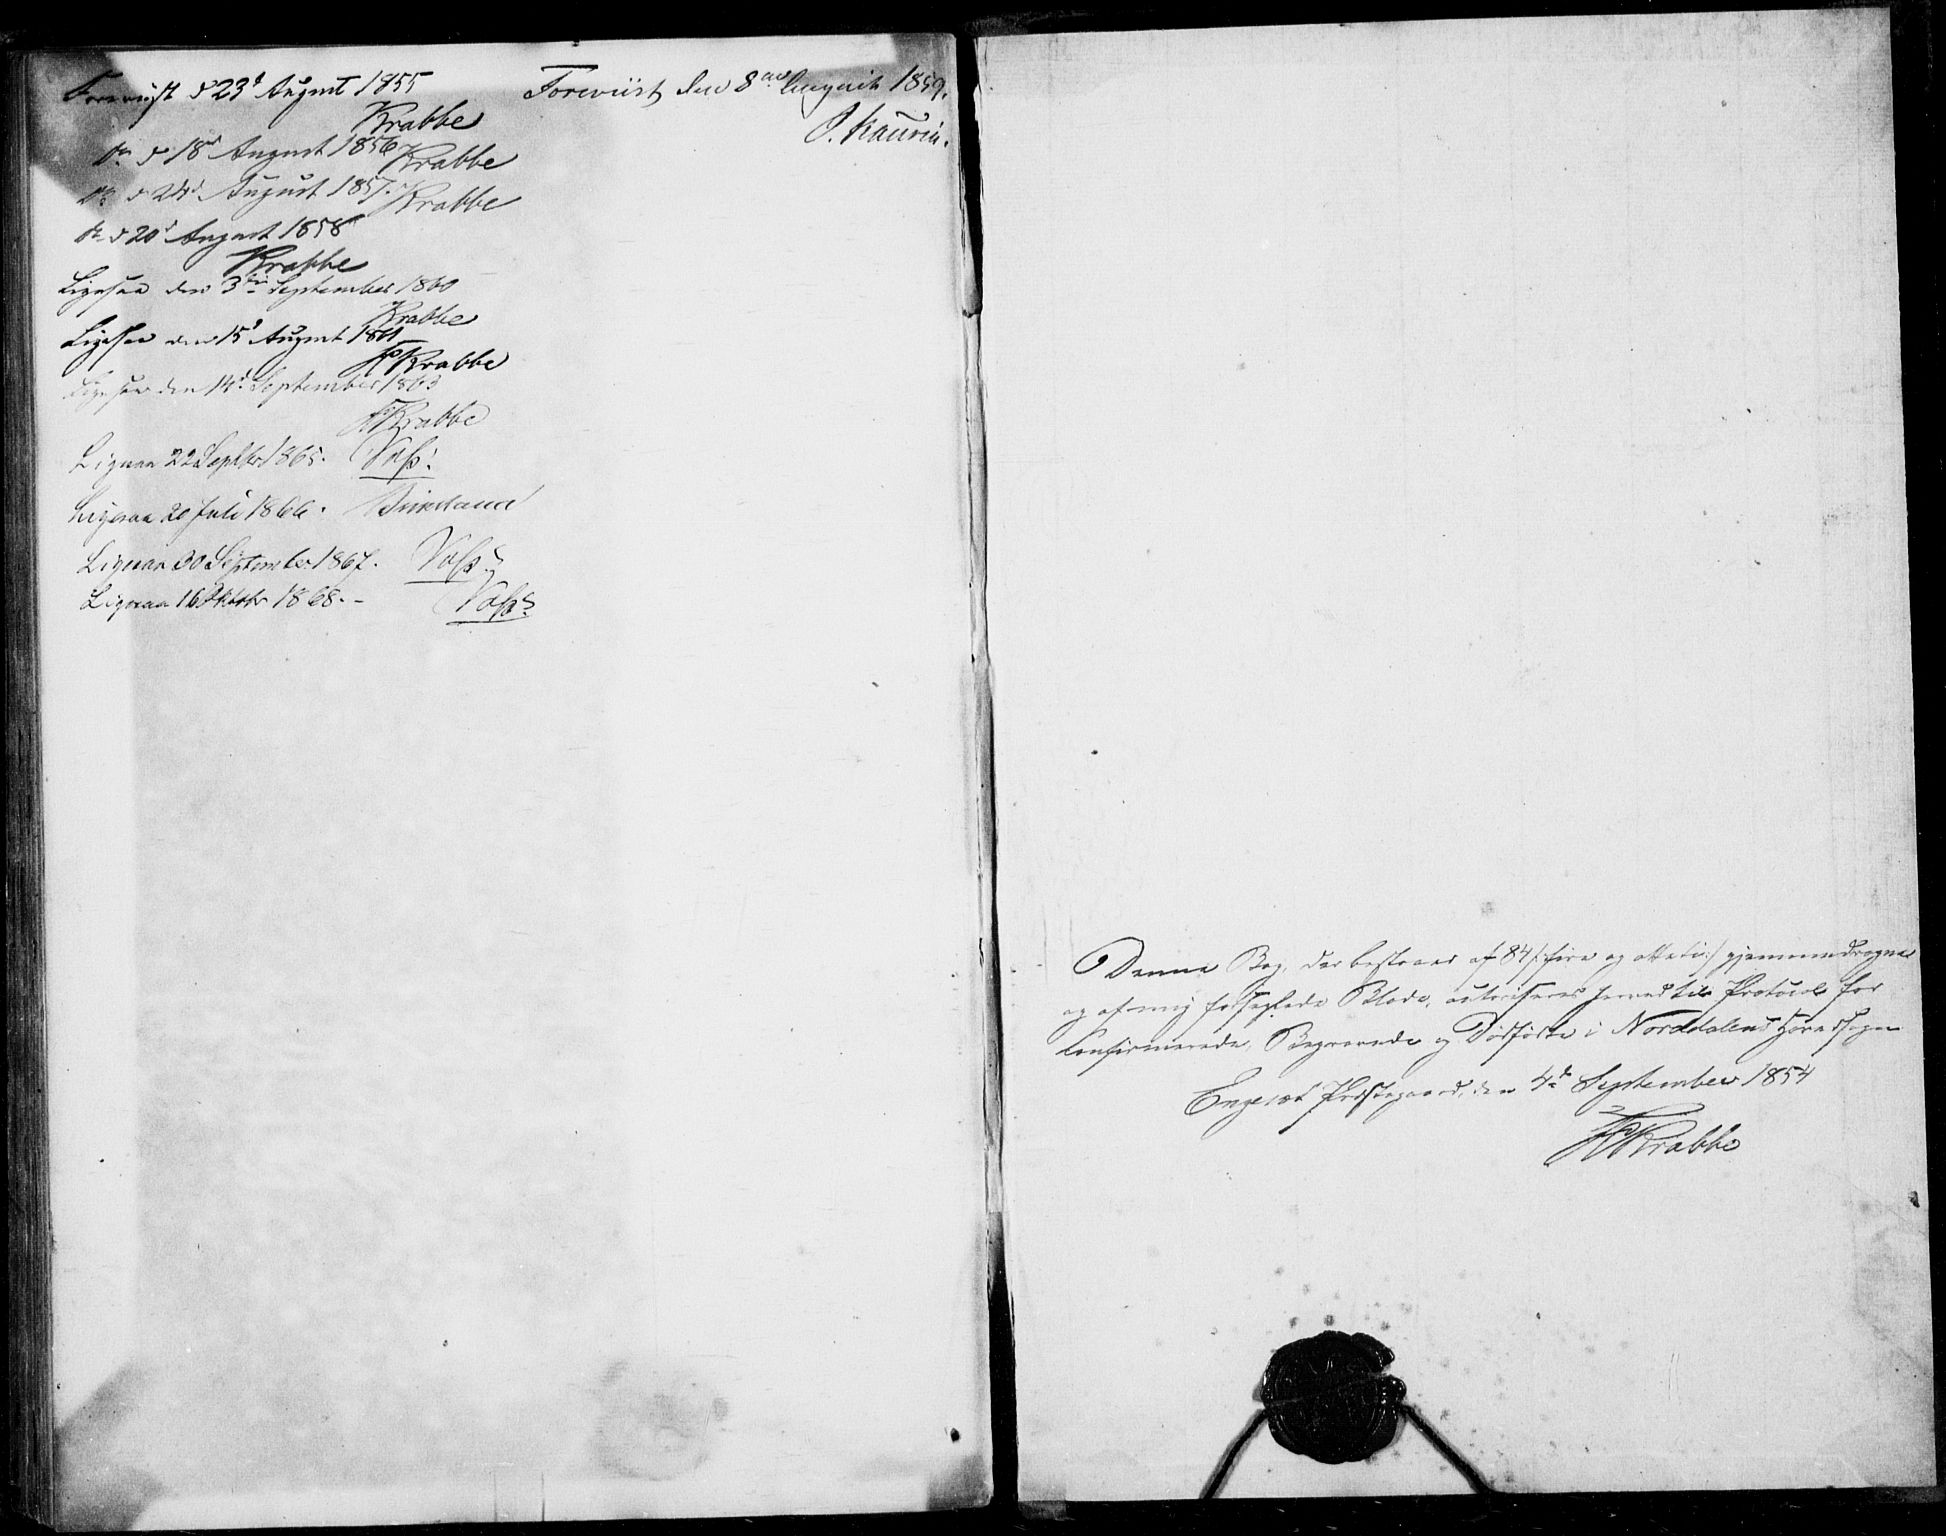 Foreviist d 23d August 1855
Krabbe
Do d 18d August 1856 Krabbe
Do d 24d August 1857. Krabbe
Do d 20d August 1858
Krabbe
Ligesaa den 3die September 1860
Krabbe
Ligesaa den 15d August 1861
HKrabbe
Ligesaa den 14d September 1863
HKrabbe
Ligesaa 22 Septbr 1865. Voss.
Ligesaa 20 Juli 1866.
Ligesaa 30 September 1867. Voss.
Ligesaa 16 Oktobr 1868. - Voss.
Foreviist den 8de August 1859.
J. Kaurin.
Denne Bog, der bestaaer af 84 /: fire og ottetie :/ gjennemdragne
og af mig forseglede Blade, autoriseres herved til Protocol for
Confirmerede, Begravede og Dødfødte i Norddalens Hovedsogn
Engeset Præstegaard, den 4de September 1854
HKrabbe